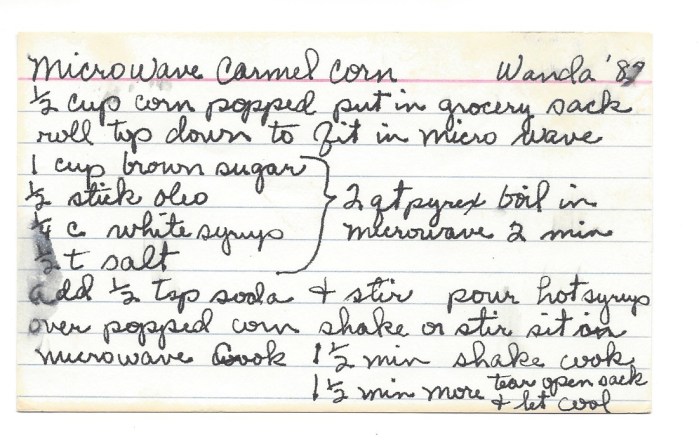 Microwave Carmel Corn Wanda '87
1/2 cup corn popped put in grocery sack
roll top down to fit in micro wave
1 cup brown sugar
1/2 stick oleo } 2 qt pyrex boil in
1/4 c white syrup microwave 2 min
1/2 t salt
add 1/2 tsp soda + stir pour hot syrup
over popped corn shake or stir sit in
microwave Cook 1 1/2 min shake cook
1 1/2 min more tear open sack
+ let cool